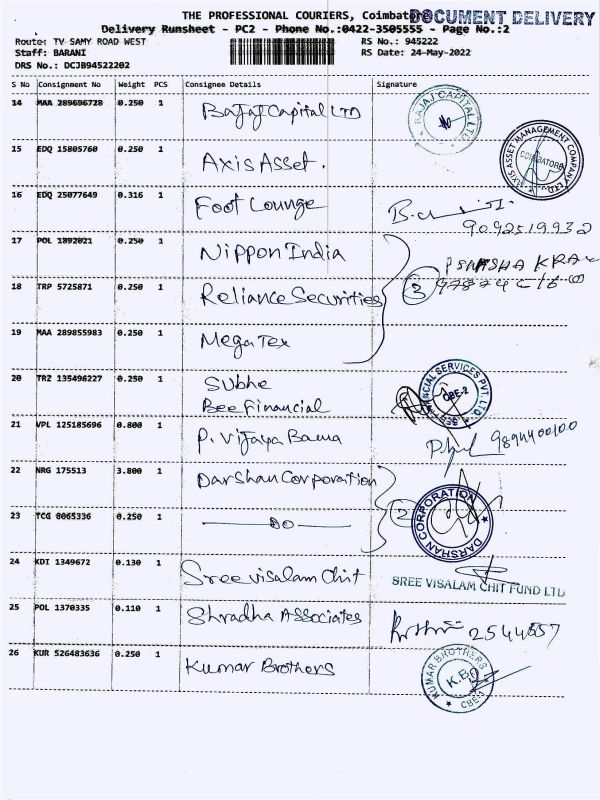 THE PROFESSIONAL COURIERS, Coimbatore
DOCUMENT DELIVERY
Delivery Runsheet - PC2 - Phone No.:0422-3505555 - Page No.:2
Route: TV SAMY ROAD WEST RS No.: 945222
Staff: BARANI RS Date: 24-May-2022
DRS No.: DCJB94522202
S No Consignment No Weight PCS Consignee Details Signature
14 MAA 289696728 0.250 1 Bajaj Capital LTD
BAJAJ CAPITAL LTD
15 EDQ 15805760 0.250 1 Axis Asset.
AXIS ASSET MANAGEMENT COMPANY LTD.
COIMBATORE
16 EDQ 25077649 0.316 1 Foot Lounge
9092519932
17 POL 1892021 0.250 1 Nippon India
18 TRP 5725871 0.250 1 Reliance Securities 3
19 MAA 289855983 0.250 1 Mega Tex
20 TRZ 135496227 0.250 1 Subhe
Bee Financial
FINANCIAL SERVICES PVT. LTD.
CBE-2
21 VPL 125185696 0.800 1 P. Vijaya Bama
9894400100
22 NRG 175513 3.800 1 Darshan Corporation
23 TCG 0065336 0.250 1 DO 2
DARSHAN CORPORATION
24 KDI 1349672 0.130 1 Sree Visalam Chit
SREE VISALAM CHIT FUND LTD
25 POL 1370335 0.110 1 Shradha Associates
2544557
26 KUR 526483636 0.250 1 Kumar Brothers
KUMAR BROTHERS
K.B